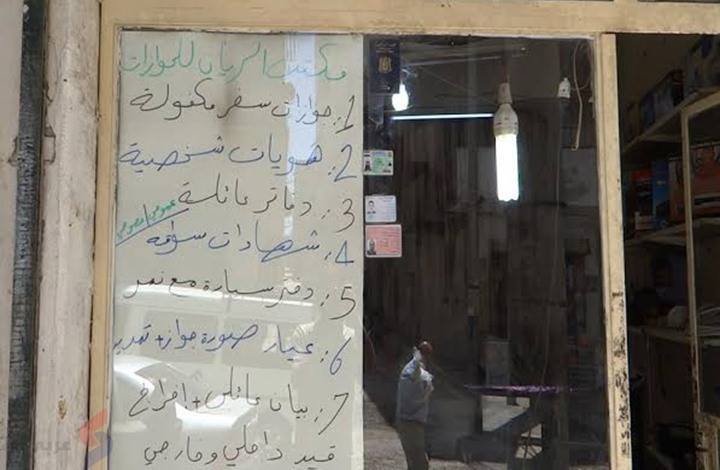 مكتب الريان للجوازات
1: جوازات سفر مكفولة
2: هويات شخصية
3: دفاتر عائلية
4: شهادات سواقة عمومي / خصوصي
5: دفتر سيارة مع نمر
6: عيار صورة جواز +
7: بيان عائلي + اخراج
قيد داخلي وخارجي